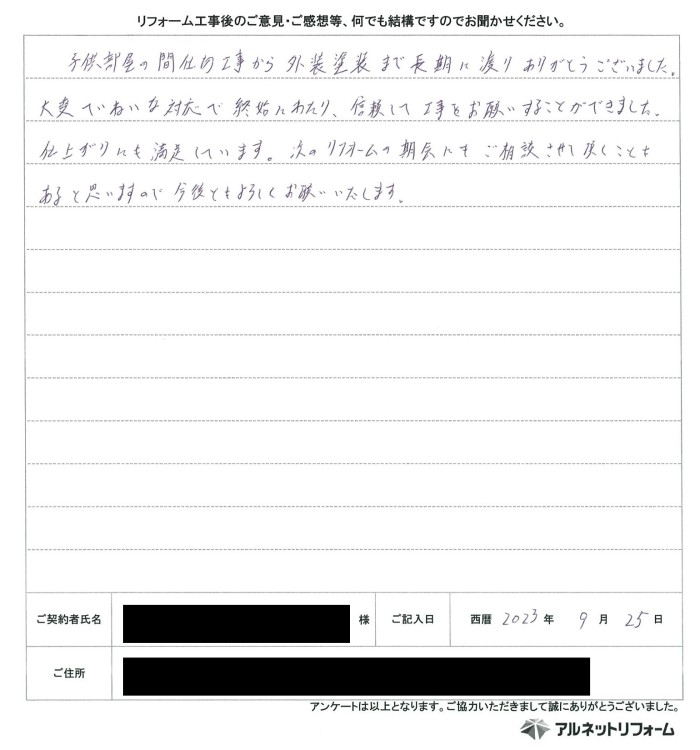 リフォーム工事後のご意見・ご感想等、何でも結構ですのでお聞かせください。
子供部屋の間仕切工事から外装塗装まで長期に渡りありがとうございました。
大変ていねいな対応で終始にわたり、信頼して工事をお願いすることができました。
仕上がりにも満足しています。次のリフォームの期会にもご相談させて頂くことも
あると思いますので今後ともよろしくお願いいたします。
ご契約者氏名 様 ご記入日 西暦 2023 年 9 月 25 日
ご住所
アンケートは以上となります。ご協力いただきまして誠にありがとうございました。
アルネットリフォーム